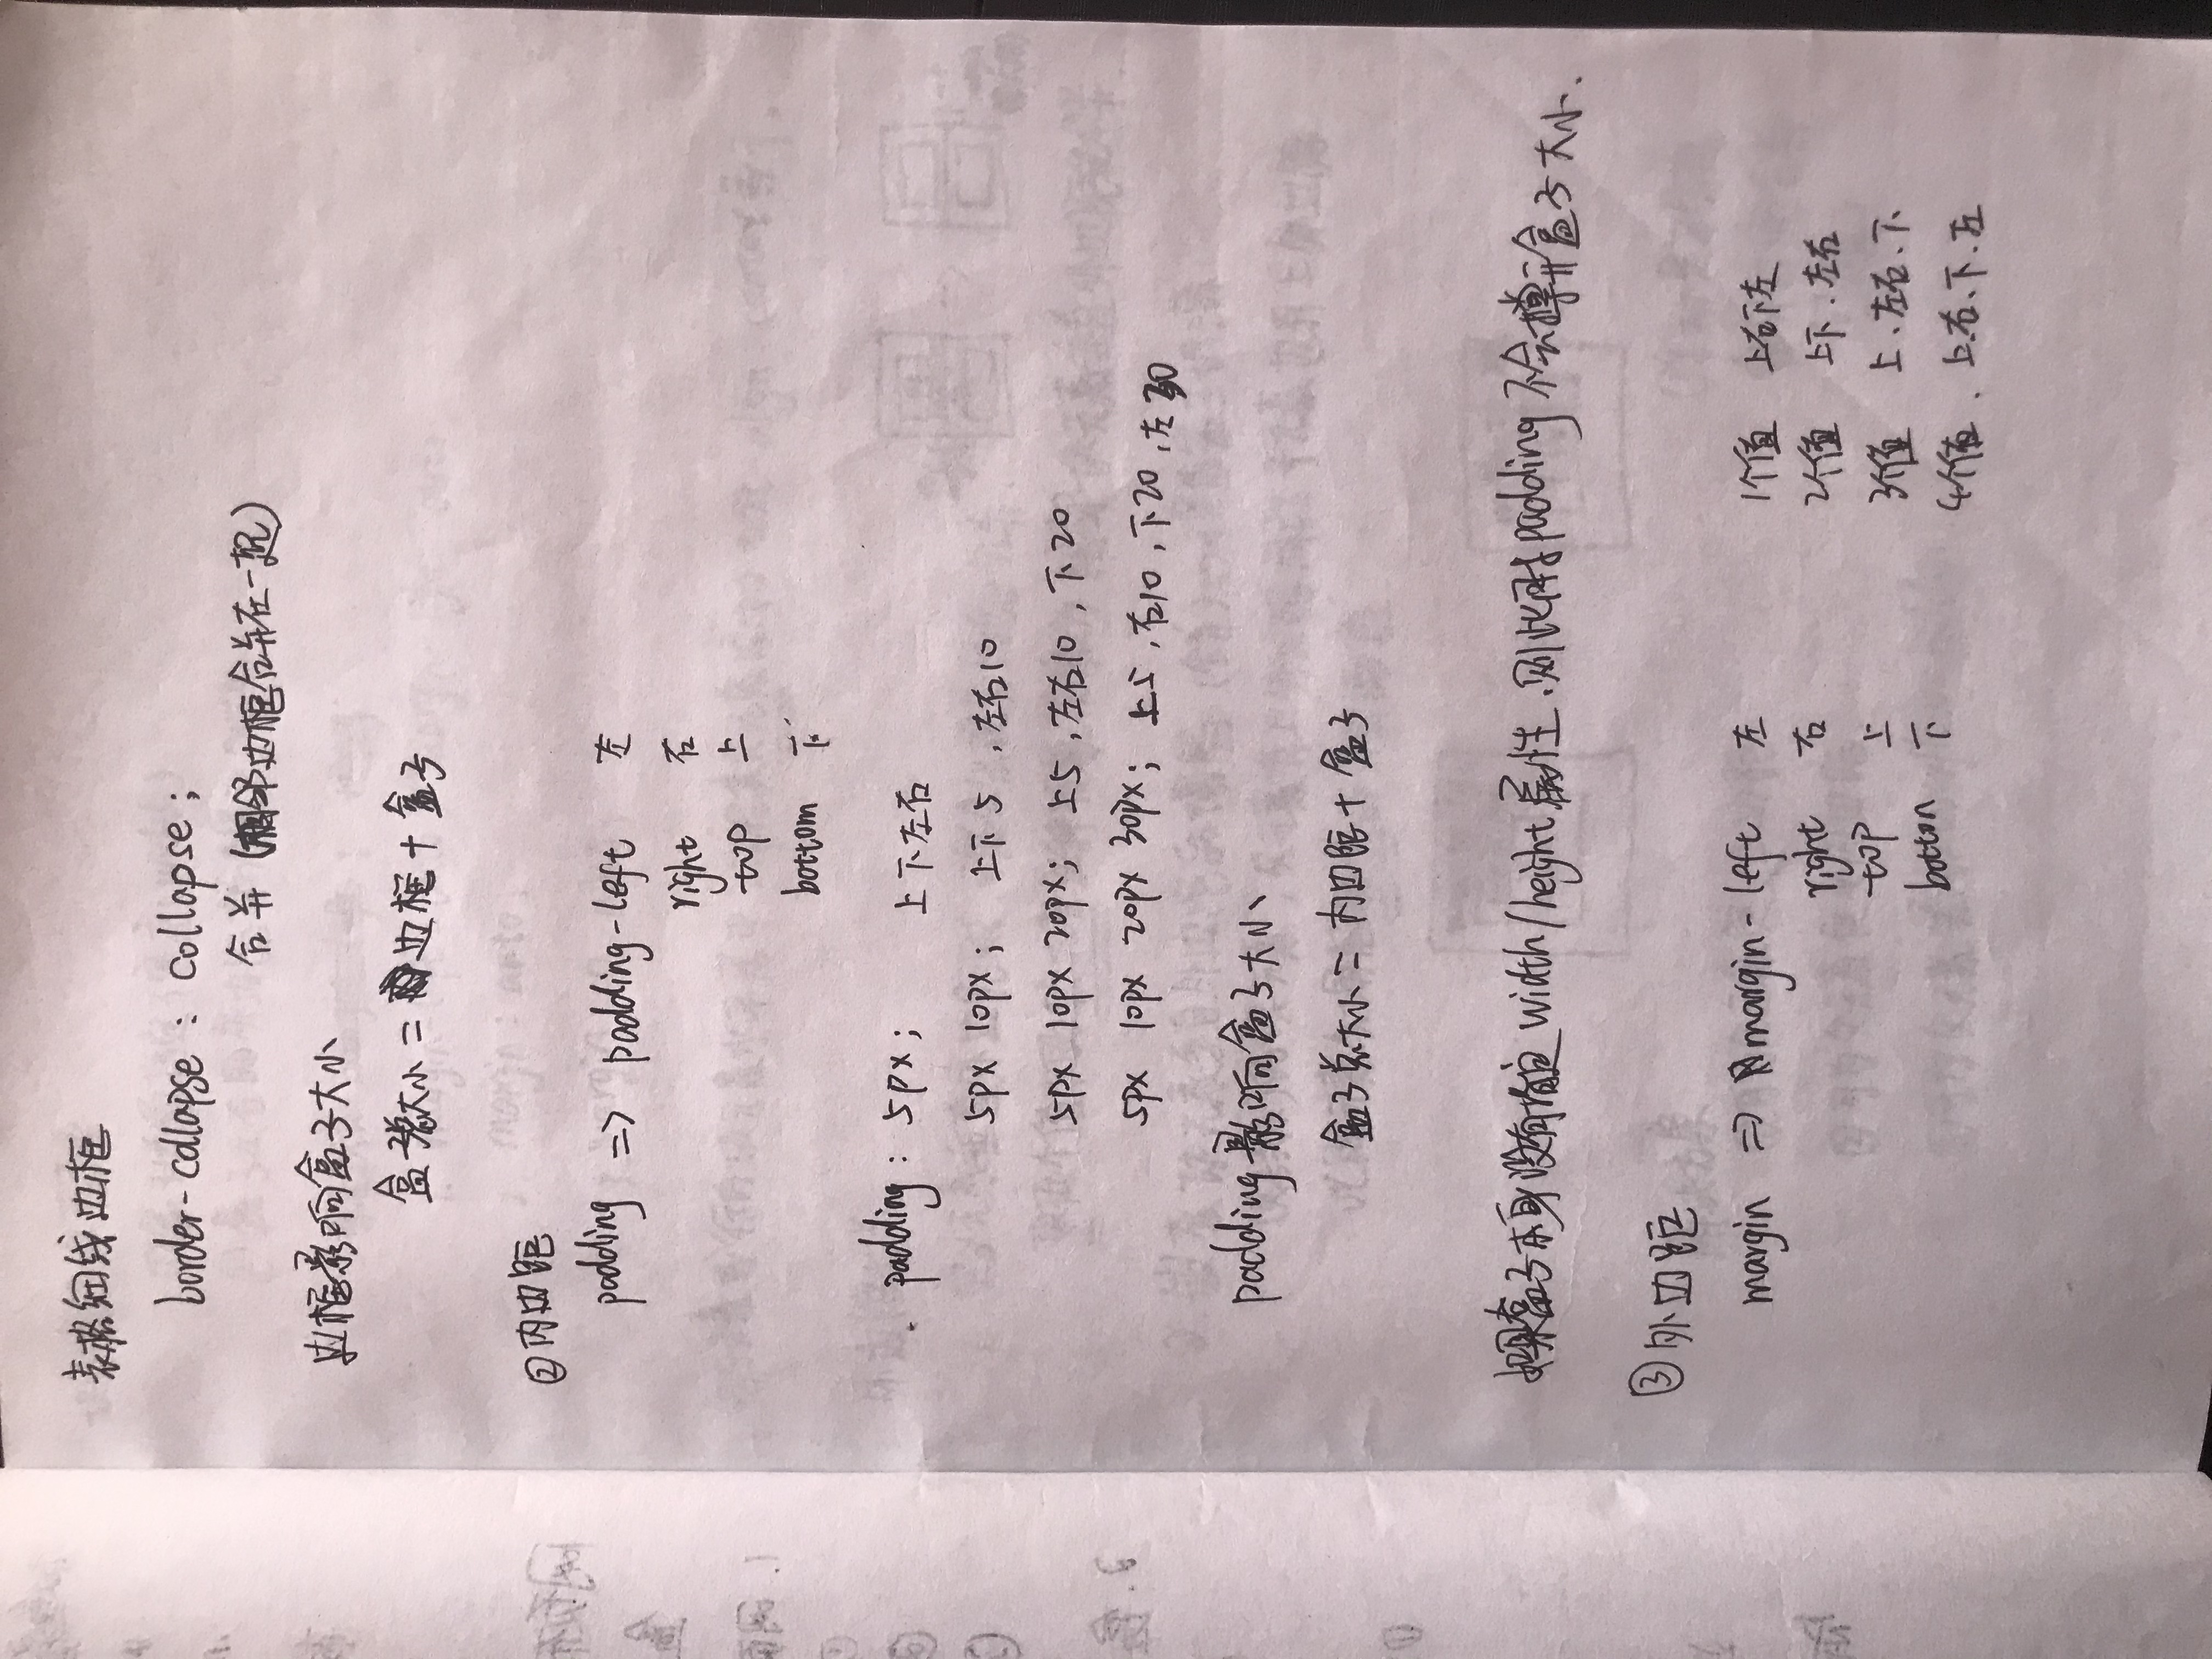 表格细线边框
border-collapse : collapse ;
合并 (相邻边框合并在一起)
边框影响盒子大小
盒子总大小 = 边框 + 盒子
②内边距
padding => padding-left 左
right 右
top 上
bottom 下
padding : 5px ; 上下左右
5px 10px ; 上下5 , 左右10
5px 10px 20px ; 上5 , 左右10 , 下20
5px 10px 20px 30px ; 上5 , 右10 , 下20 , 左30
padding影响盒子大小
盒子总大小 = 内边距 + 盒子
如果盒子本身没有指定width/height属性、则此时padding不会撑开盒子大小、
③外边距
margin => margin-left 左 1个值 上右下左
right 右 2个值 上下、左右
top 上 3个值 上、左右、下
botton 下 4个值、上、右、下、左